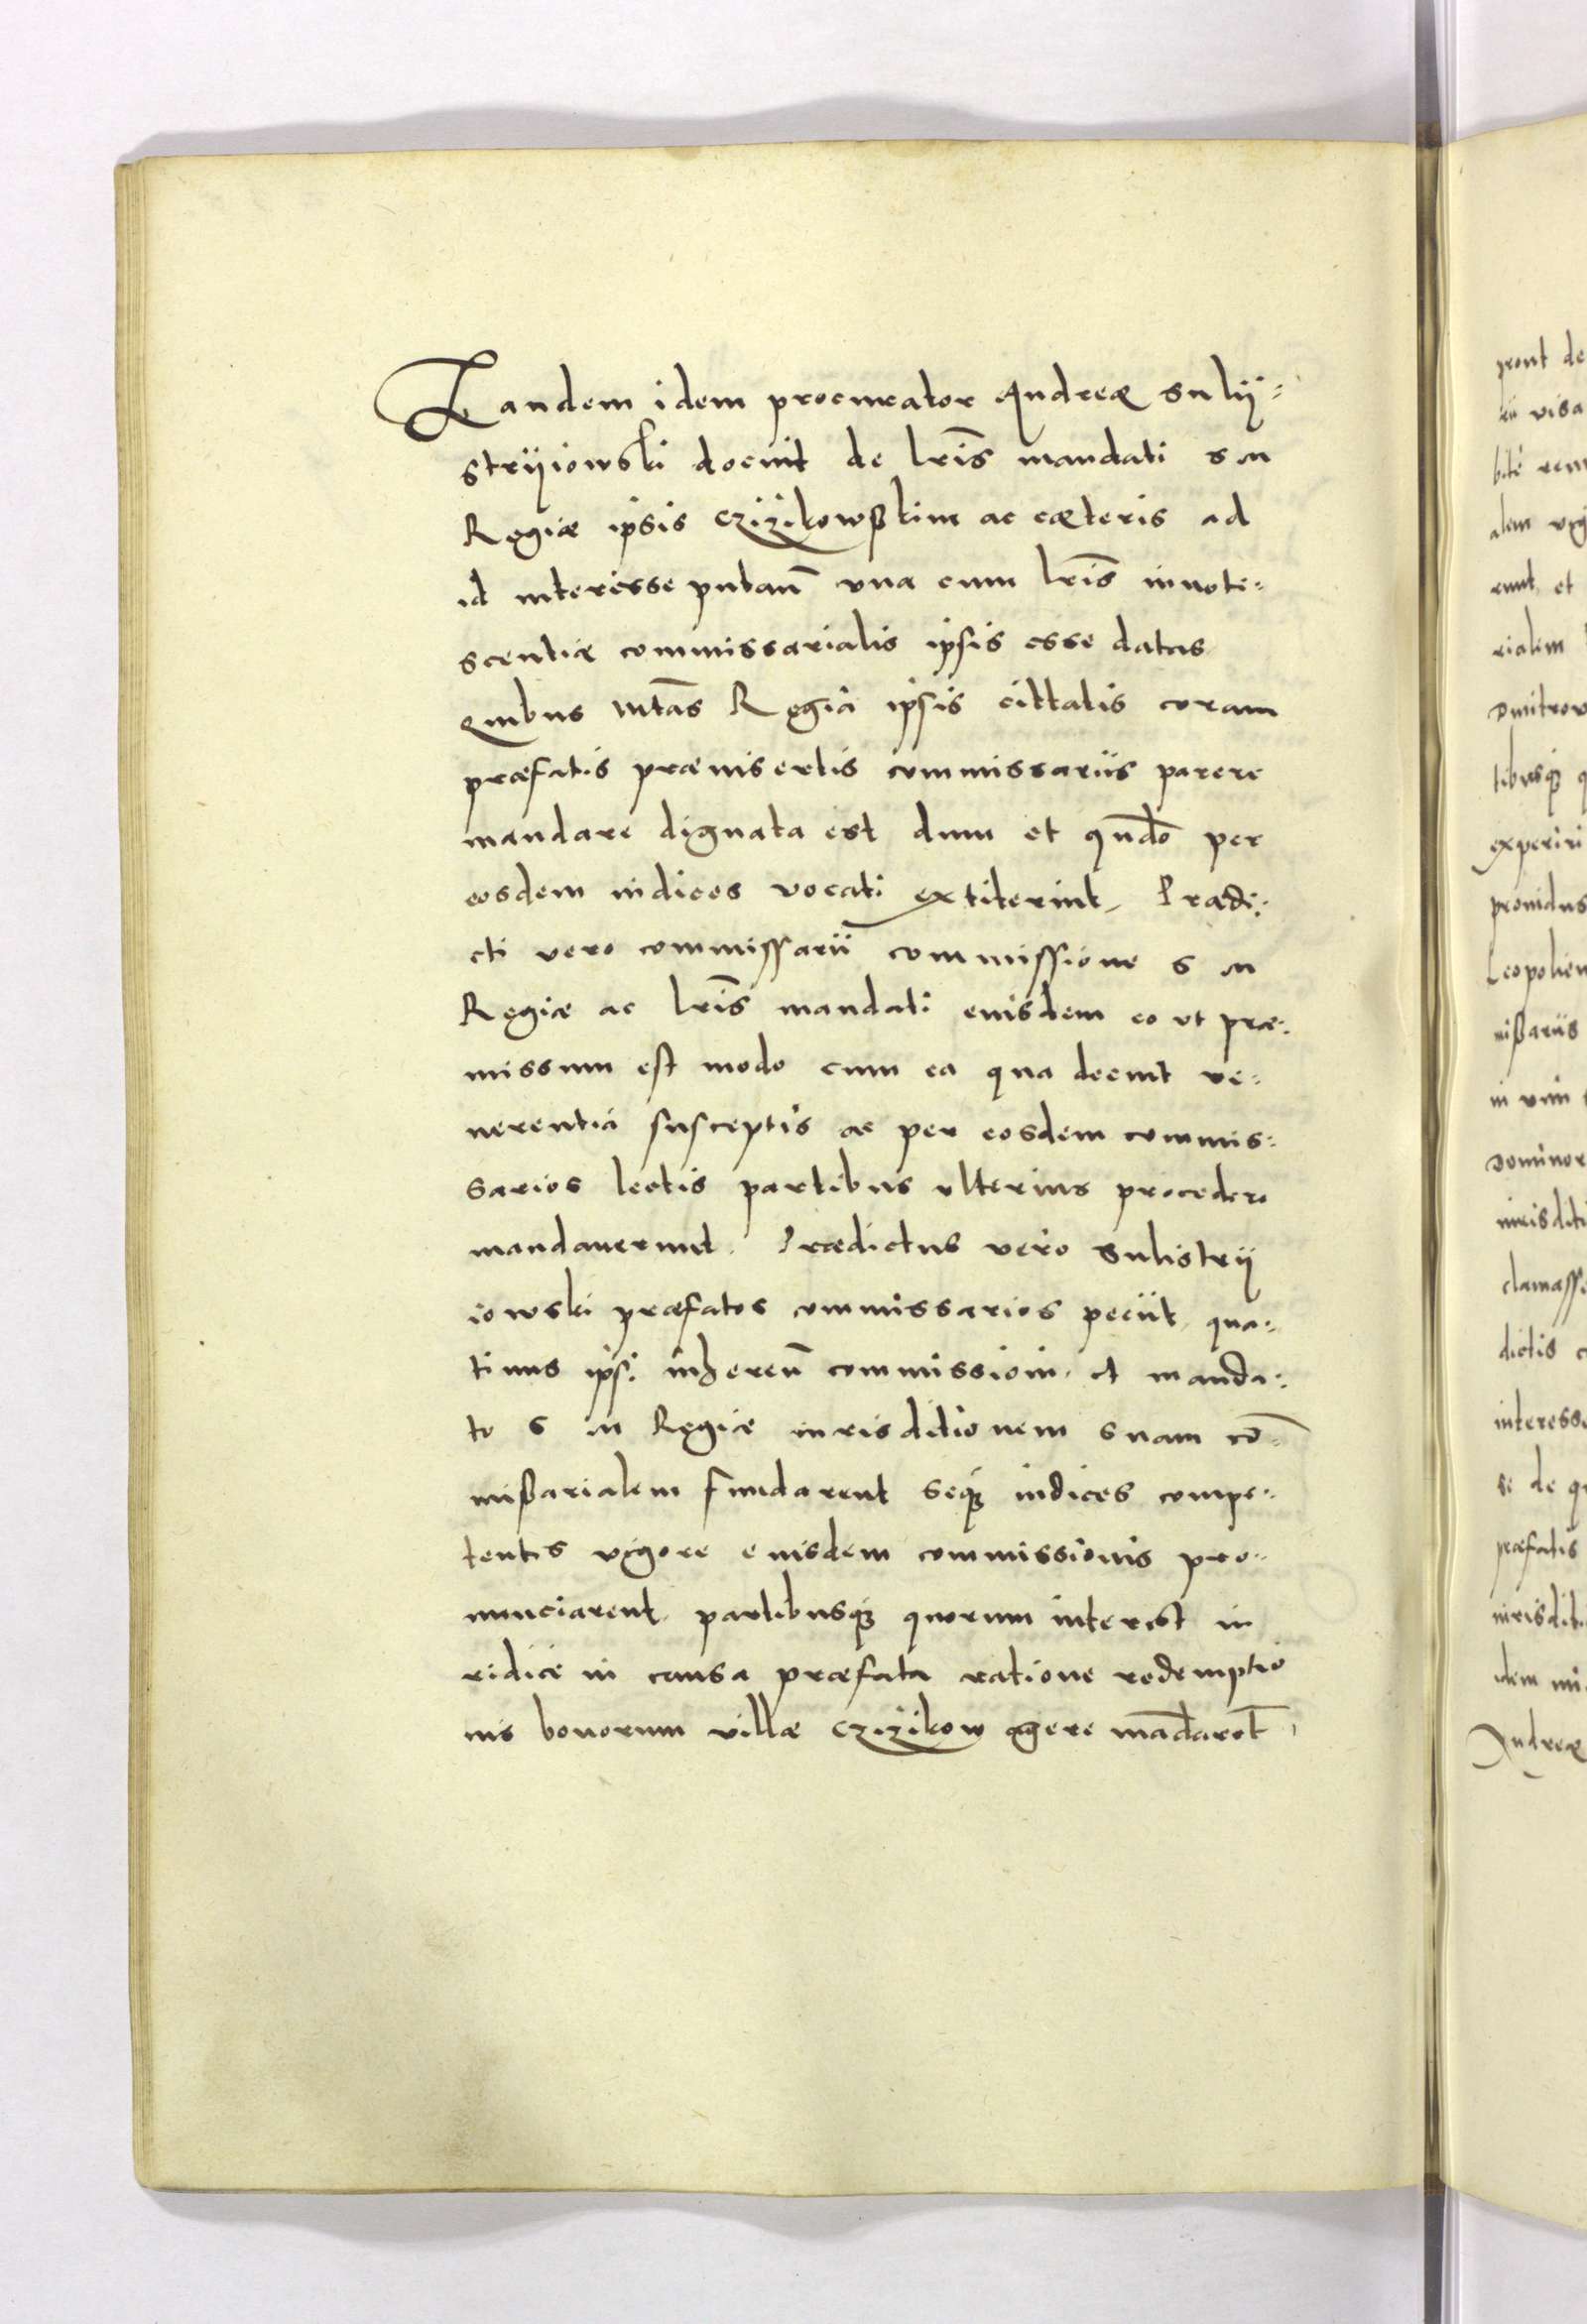 Tandem idem procurator Andreæ Sulij=
strijiowski docuit de lr̄is mandati S M
Regiæ ipsis Czizikowskim ac cæteris ad
id interesse putan̄ una cum lr̄is innote=
scentiæ commissarialis ipsis esse datas
Quibus Mtās Regia ipsis cittatis coram
præfatis præinsertis commissariis parere
mandare dignata est dum et qundō per
eosdem iudices vocati extiterint, Prædi=
cti vero commissarii commissione S M
Regiæ ac lr̄is mandati eiusdem eo ut præ=
missum est modo cum ea qua decuit ve=
nerentia susceptis ac per eosdem commis=
sarios lectis partibus ulterius procedere
mandaverunt. Prædictus vero Sulistrij
iowski præfatos commissarios peciit, qua=
tinus ipsi inheren̄ commissioni, et manda=
to S M Regiæ iurisditionem suam cō=
mißarialem fundarent seq; iudices compe=
tentes vigore eiusdem commissionis pro=
nunciarent, partibusq; quorum interest iu
ridice in causa præfata ratione redemptio
nis bonorum villæ Czizikow agere mādaret̄,
pront de
visa
bite
alem
runt, et
rialem
Dmitrow
tibusq;
experiri
providus
Leopolien
mißariis
in vim
Dominor
iurisditi
clamasse
dictis
interesse
se de
præfatis
iurisditi
idem
Andreæ